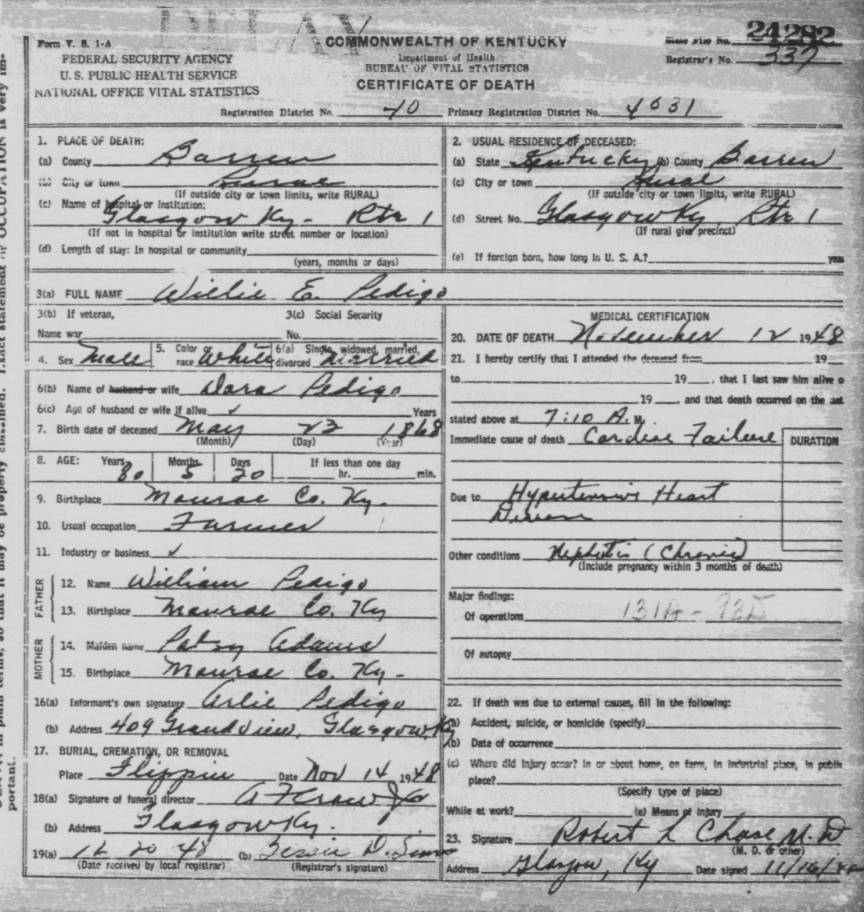 DELAY
Form V. S. 1-A
FEDERAL SECURITY AGENCY
U. S. PUBLIC HEALTH SERVICE
NATIONAL OFFICE VITAL STATISTICS
COMMONWEALTH OF KENTUCKY
Department of Health
BUREAU OF VITAL STATISTICS
CERTIFICATE OF DEATH
State File No. 24282
Registrar's No. 337
Registration District No. 40 Primary Registration District No. 4031
1. PLACE OF DEATH:
(a) County Barren
(b) City or town Rural
(If outside city or town limits, write RURAL)
(c) Name of hospital or institution:
Glasgow Ky- Rtr 1
(If not in hospital or institution write street number or location)
(d) Length of stay: In hospital or community
(years, months or days)
2. USUAL RESIDENCE OF DECEASED:
(a) State Kentucky (b) County Barren
(c) City or town Rural
(If outside city or town limits, write RURAL)
(d) Street No. Glasgow Ky, Rtr 1
(If rural give precinct)
(e) If foreign born, how long in U. S. A.? years
3(a) FULL NAME Willie E. Pedigo
3(b) If veteran, 3(c) Social Security
Name war No.
4. Sex Male 5. Color or race White 6(a) Single, widowed, married, divorced Married
6(b) Name of husband or wife Dora Pedigo
6(c) Age of husband or wife if alive ✓ Years
7. Birth date of deceased May 23 1868
(Month) (Day) (Year)
8. AGE: Years Months Days If less than one day
80 5 20 hr. min.
9. Birthplace Monroe Co. Ky.
10. Usual occupation Farmer
11. Industry or business ✓
FATHER
12. Name William Pedigo
13. Birthplace Monroe Co. Ky
MOTHER
14. Maiden name Patsy Adams
15. Birthplace Monroe Co. Ky-
16(a) Informant's own signature Arlie Pedigo
(b) Address 409 Grandview, Glasgow, Ky
17. BURIAL, CREMATION, OR REMOVAL
Place Flippin Date Nov 14 1948
18(a) Signature of funeral director A F Crow
(b) Address Glasgow Ky.
19(a) 12 20 48 (b)
(Date received by local registrar) (Registrar's signature)
MEDICAL CERTIFICATION
20. DATE OF DEATH November 12 1948
21. I hereby certify that I attended the deceased from 19
to 19 , that I last saw him alive o
19 , and that death occurred on the
stated above at 7:10 A. M.
Immediate cause of death Cardiac Failure DURATION
Due to Hypertensive Heart
Disease
Other conditions Nephritis (Chronic)
(Include pregnancy within 3 months of death)
Major findings:
Of operations 131A - 93D
Of autopsy
22. If death was due to external causes, fill in the following:
(a) Accident, suicide, or homicide (specify)
(b) Date of occurrence
(c) Where did injury occur? In or about home, on farm, in industrial place, in public
place?
(Specify type of place)
While at work? (e) Means of injury
23. Signature Robert L Chase M.D
(M. D. or other)
Address Glasgow, Ky Date signed 11/16/48